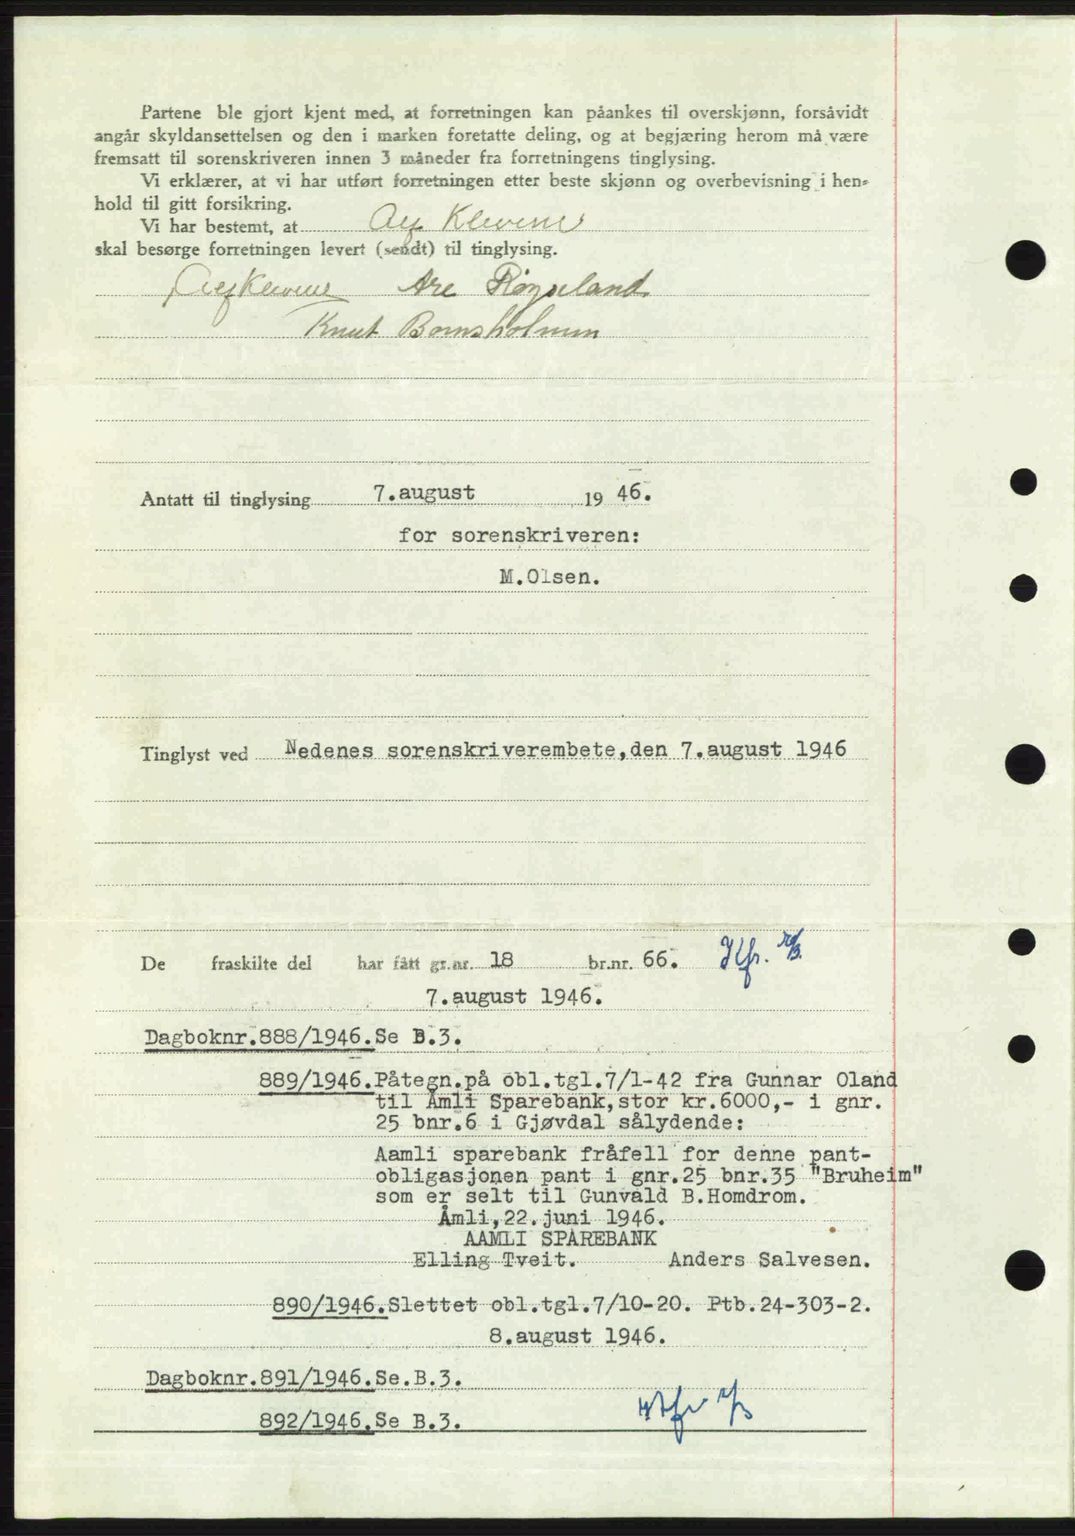 Partene ble gjort kjent med, at forretningen kan påankes til overskjønn, forsåvidt
angår skyldansettelsen og den i marken foretatte deling, og at begjæring herom må være
fremsatt til sorenskriveren innen 3 måneder fra forretningens tinglysing.
Vi erklærer, at vi har utført forretningen etter beste skjønn og overbevisning i hen-
hold til gitt forsikring.
Vi har bestemt, at Alf Klevene
skal besørge forretningen levert (sendt) til tinglysing.
Alf Klevene Are Røyseland
Knut Bomsholmm
Antatt til tinglysing 7.august 19 46.
for sorenskriveren:
M.Olsen.
Tinglyst ved Nedenes sorenskriverembete,den 7.august 1946
De fraskilte del har fått gr.nr. 18 br.nr. 66.
7.august 1946.
Dagboknr.888/1946.Se B.3.
889/1946.Påtegn.på obl.tgl.7/1-42 fra Gunnar Oland
til Åmli Sparebank,stor kr.6000,- i gnr.
25 bnr.6 i Gjøvdal sålydende:
Aamli sparebank fråfell for denne pant-
obligasjonen pant i gnr.25 bnr.35 "Bruheim"
som er selt til Gunvald B.Homdrom.
Åmli,22.juni 1946.
AAMLI SPAREBANK
Elling Tveit. Anders Salvesen.
890/1946.Slettet obl.tgl.7/10-20. Ptb.24-303-2.
8.august 1946.
Dagboknr.891/1946.Se.B.3.
892/1946.Se B.3.